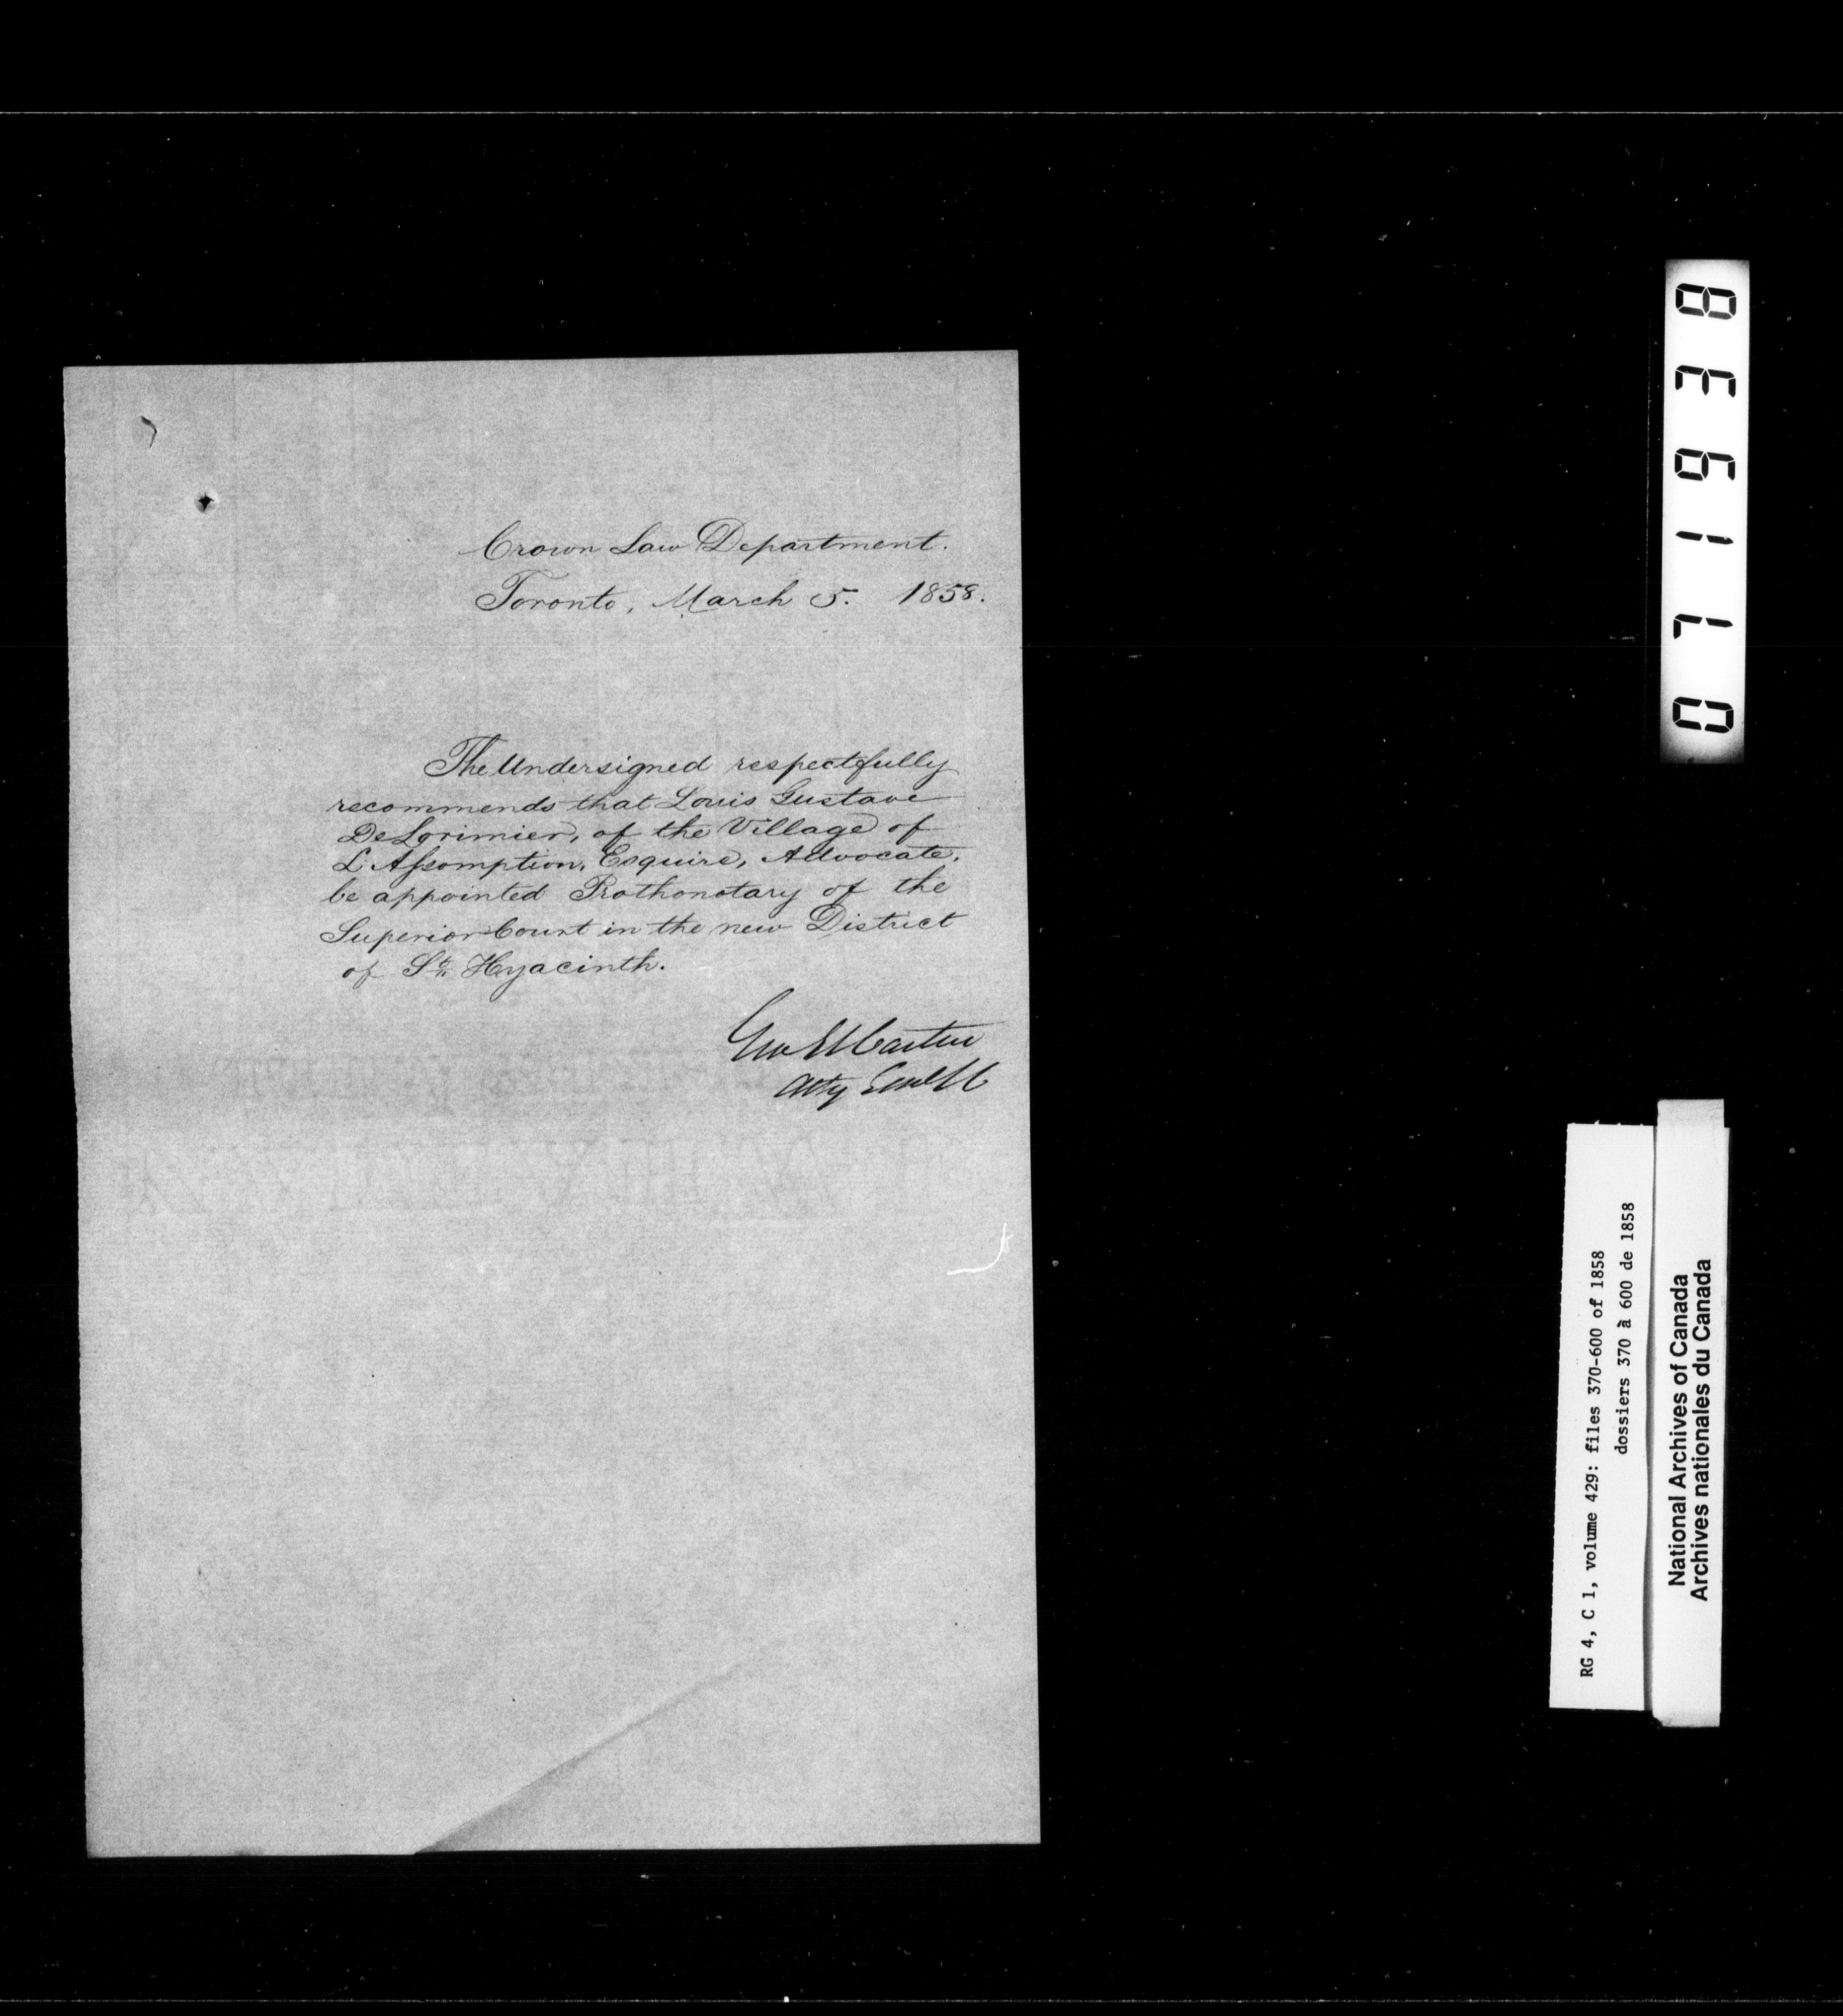 Crown Law Department.
Toronto, March 5. 1858.
The Undersigned respectfully
recommends that Louis Gustave
DeLorimier, of the Village of
L'Assomption, Esquire, Advocate,
be appointed Prothonotary of the
Superior Court in the new District
of St. Hyacinth.
Geo Et Cartier
Atty Genl LC
071938
RG 4, C 1, volume 429: files 370-600 of 1858
dossiers 370 à 600 de 1858
National Archives of Canada
Archives nationales du Canada